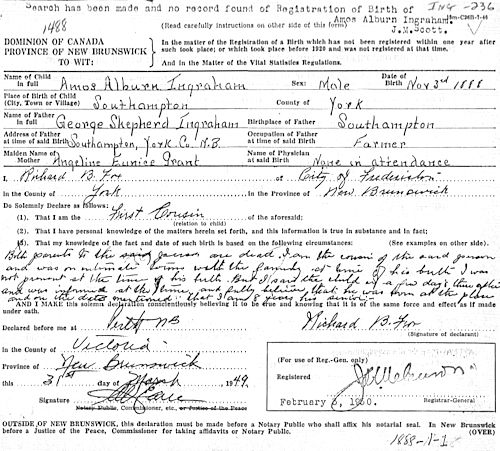 Search has been made and no record found of Registration of Birth of
Amos Alburn Ingraham.
J.M.Scott.
ING -236
1488
(Read carefully instructions on other side of this form)
DOMINION OF CANADA
PROVINCE OF NEW BRUNSWICK
TO WIT:
In the matter of the Registration of a Birth which has not been registered within one year after
such took place; or which took place before 1920 and was not registered at that time.
And in the Matter of the Vital Statistics Regulations.
Name of Child in full Amos Alburn Ingraham Sex: Male Date of Birth Nov 3rd 1888
Place of Birth of Child (City, Town or Village) Southampton County of York
Name of Father in full George Shepherd Ingraham Birthplace of Father Southampton
Address of Father at time of said Birth Southampton, York Co. N.B. Occupation of Father at said Birth Farmer
Maiden Name of Mother Angeline Eunice Grant Name of Physician at said Birth None in attendance
I, Richard B. Fox of City of Fredericton
in the County of York in the Province of New Brunswick
Do Solemnly Declare as follows:
(1). That I am the First Cousin of the aforesaid;
(relation to child)
(2). That I have personal knowledge of the matters herein set forth, and this information is true in substance and in fact;
(3). That my knowledge of the fact and date of such birth is based on the following circumstances: (See examples on other side).
Both parents to the said person are dead. I am the cousin of the said person
and was on intimate terms with the family at time of his birth. I was
not present at the time of his birth. But I said the child a few day's thereafter
and was informed at the time, and fully believe that he was born at the place
and on the date mentioned. that I am 8 years his senior.
AND I MAKE this solemn declaration conscientiously believing it to be true and knowing that it is of the same force and effect as if made
under oath.
Declared before me at Perth NB
Richard B. Fox
(Signature of declarant)
in the County of Victoria
Province of New Brunswick
this 31st day of March 1949.
Signature
Notary Public, Commissioner, etc., or Justice of the Peace
(For use of Reg.-Gen. only)
Registered
February 6, 1950. Registrar-General
OUTSIDE OF NEW BRUNSWICK, this declaration must be made before a Notary Public who shall affix his notarial seal. In New Brunswick
before a Justice of the Peace, Commissioner for taking affidavits or Notary Public. (OVER)